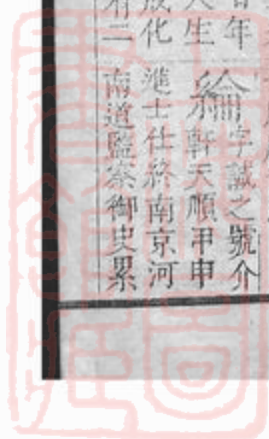 年
生
化
二
綸字誠之號介
軒天順甲申
進士仕終南京河
南道監察御史累